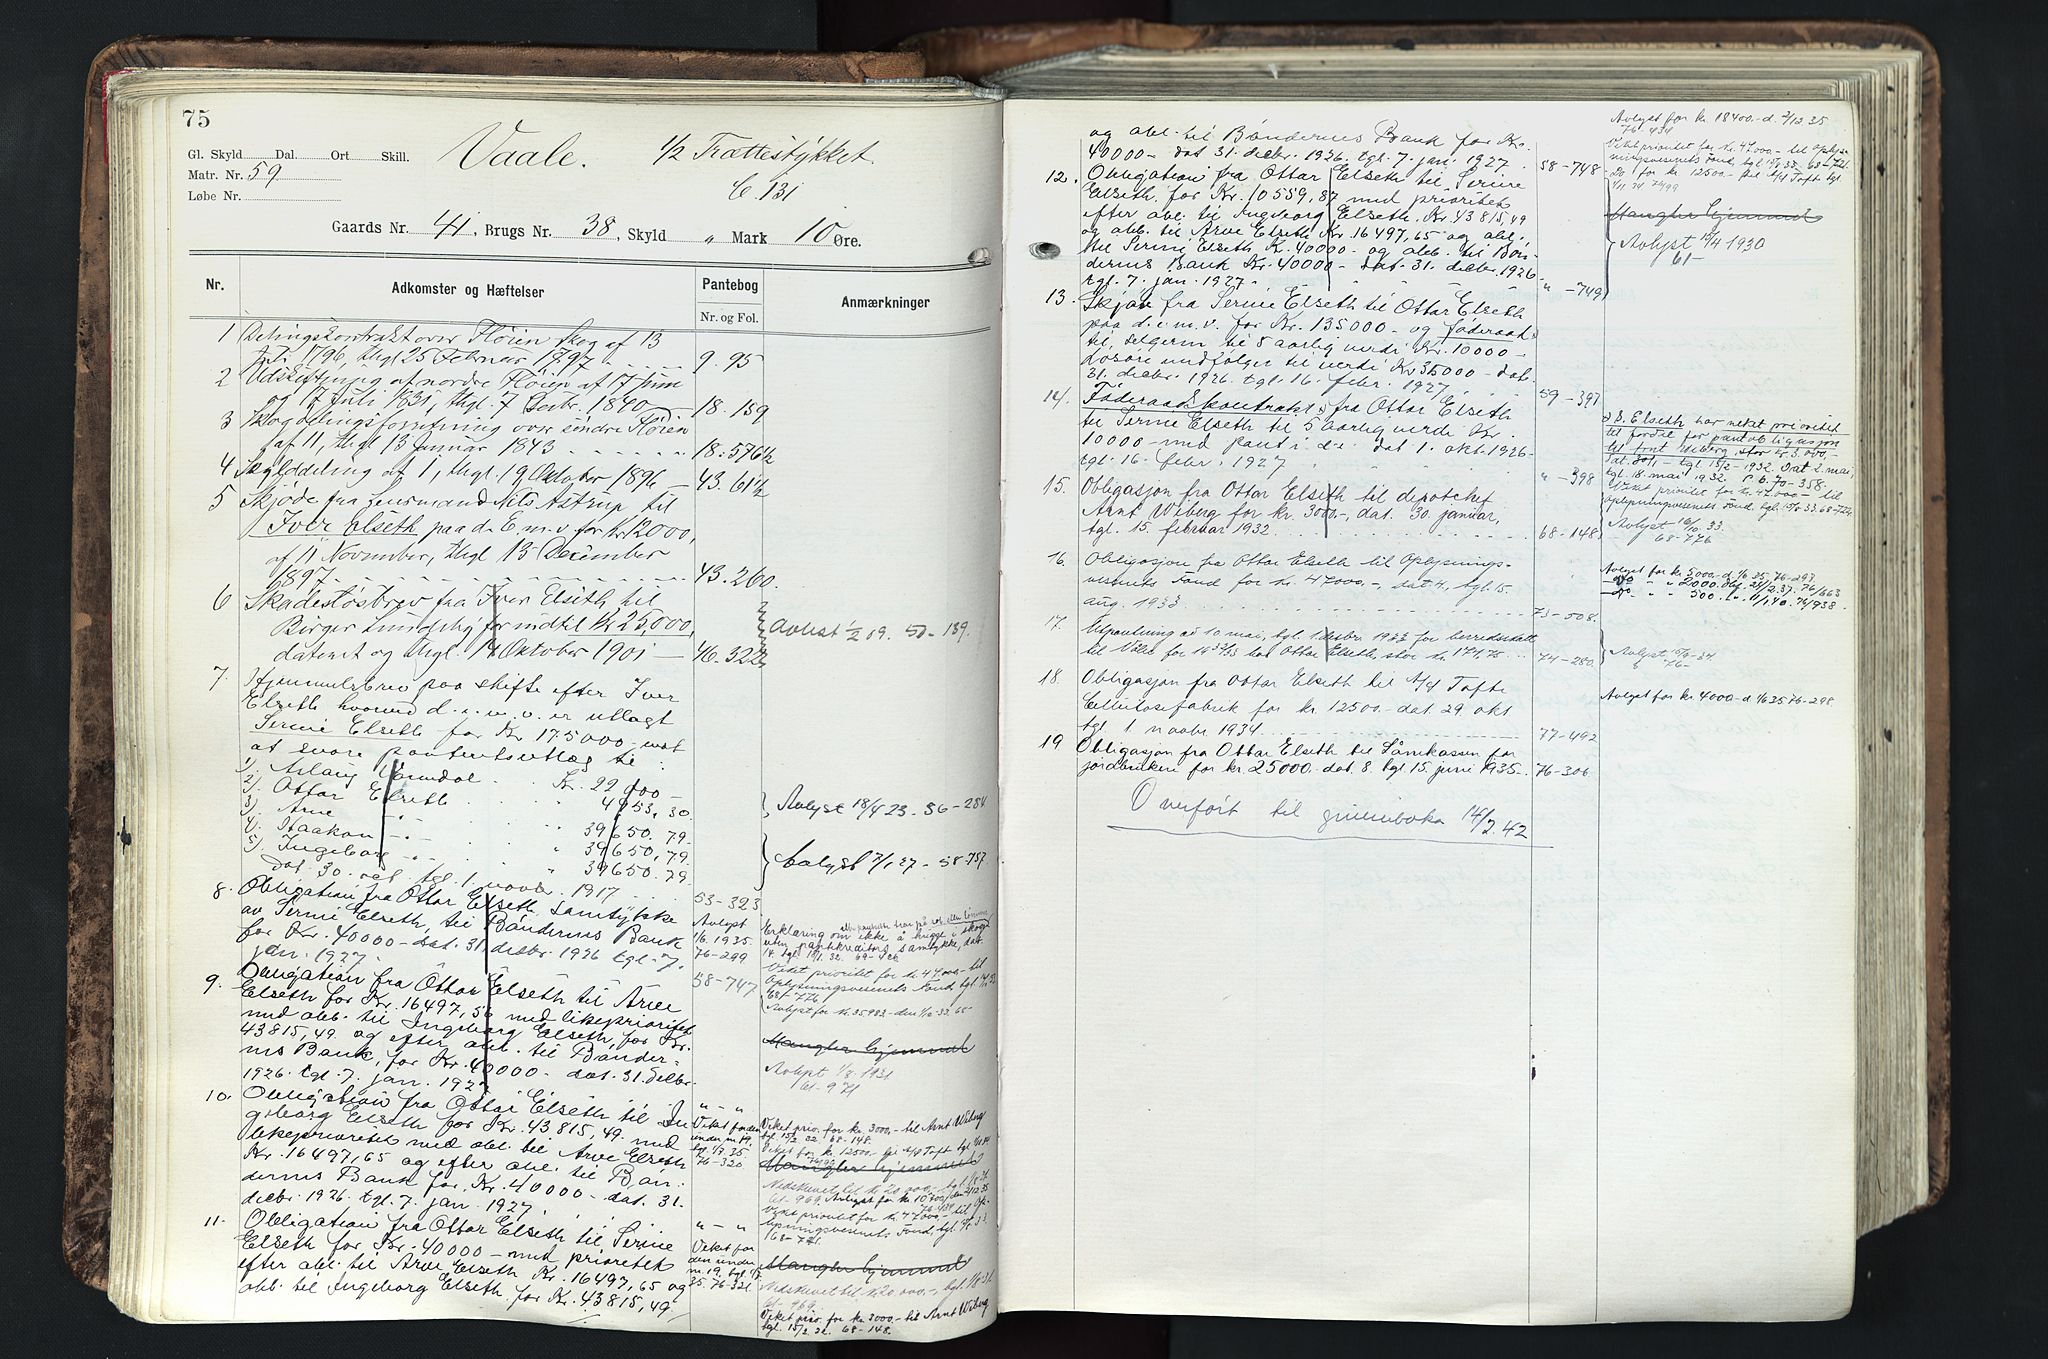 75
Vaale. 1/2 Trættestykket
Gl. Skyld Dal. Ort Skill.
Matr. Nr. 59
Løbe Nr.
C. 131
Gaards Nr. 41, Brugs Nr. 38, Skyld " Mark 10 Øre.
Nr. Adkomster og Hæftelser Pantebog Anmærkninger
Nr. og Fol.
1 Delingskontrakt over Fløien Skog af 13
1796, thgl. 25 Februar 1797 9. 95
2 Udskiftning af nordre Fløien af 17 Juni
og 7 Juli 1831, thgl. 7 1840 18. 159
3 Skogdelingsforretning over søndre Fløien
af 11, thgl 13 Januar 1843 18. 576 1/2
4 Skylddeling af 1, thgl. 19 Oktober 1896 43. 61 1/2
5 Skjøde fra Lensmand Nils Astrup til
Iver Elseth paa d. E. m. v. for Kr 12000,
af 11 November, thgl 13 December
1897 43. 260
6 Skadesløsbrev fra Iver Elseth til
Birger for indtil Kr 25,000,
dateret og thgl. 14 Oktober 1901 46. 322
Avlyst 1/2 09. 50-139.
7. Hjemmelsbrev paa skifte efter Iver
Elseth hvorved d. e. m. v. er utlagt
Serine Elseth for Kr 175000 mot
at svare panterets utlæg til:
1). Aslaug Kr. 22000-
2). Ottar Elseth " 4953,30
3). Arne -"- " 39650.79
4). Haakon -"- " 39650,79
5). Ingeborg -"- " 39650.79
Dat. 30. okt. tgl. 1. novbr. 1917 53-323
Avlyst 18/4 23. 56-284
Avlyst 7/1 27- 58-757
8. Obligation fra Ottar Elseth, samtykke
av Serine Elseth, til Bøndernes Bank
for Kr. 40000- dat. 31. decbr. 1926 tgl. 7.
jan. 1927. 58-747
Avlyst
1935.
76-299
Erklæring om ikke å hugge i skogen
uten pantkreditors samtykke, dat.
Veket prioritet for kr. 47000.- til
Oplysningsvesenets Fond
68-776
9. Obligation fra Ottar Elseth til Arve
Elseth for Kr. 16497,56 med likeprioritet
med obl. til Ingeborg Elseth, for Kr.
43815,49 og efter obl. til Bønder-
nes Bank, for Kr. 40000- dat. 31. decbr.
1926. tgl. 7. jan. 1927
Mangler hjemmel
Avlyst 1/8. 1931
61-971
10. Obligation fra Ottar Elseth til In
geborg Elseth for Kr. 43815,49. med
likeprioritet med obl. til Arve Elseth
Kr. 16497,65 og efter obl. til Bøn-
dernes Bank for Kr. 40000- dat. 31.
decbr. 1926. tgl. 7. jan. 1927.
" - "
Veket for den
under nr. 19.
76-320.
Veket prio. for kr. 3000.- til Arnt Wiberg
tgl. 15/2 32 68-148.
Mangler hjemmel
Veket prioritet for kr. 47000.- til Op-
lysningsvesenets Fond
11. Obligation fra Ottar Elseth til Serine
Elseth for Kr. 40000- med prioritet
efter obl. til Arve Elseth Kr. 16497,65 og
obl. til Ingeborg Elseth for Kr. 43815,49.
" - "
Veket for
den under
nr. 19, tgl.
35. 76-321.
Mangler hjemmel
61-969.
Veket prio. for kr 3000.- til Arnt Wiberg
tgl. 15/2 32. 68-148.
og obl. til Bøndernes Bank for Kr.
40000- dat 31. decbr. 1926. tgl. 7. jan. 1927. 58-748
Avlyst for kr. 18400.- d. 2/12 35
76-434
Veket prioritet for kr. 47000.- til Oplys-
ningsvesenets Fond
Do for kr 12500.- til A/S Tofte tgl.
Mangler hjemmel
12. Obligation fra Ottar Elseth til Serine
Elseth for Kr. 10559,87 med prioritet
efter obl. til Ingeborg Elseth, Kr. 43815,49
og obl. til Arve Elseth Kr. 16497,65 og obl.
til Serine Elseth Kr. 40000- og obl. til Bøn-
dernes Bank Kr. 40000- Dat. 31. decbr. 1926-
tgl. 7. jan. 1927. " - 749
Avlyst 1930
61-
13. Skjøte fra Serine Elseth til Ottar Elseth
paa d. e. m. v. for Kr. 135000- og føderaad
til selgerin til 5 aarlig verdi Kr. 10000-
Løsøre medfølger til verdi Kr 35000- Dat.
31. decbr. 1926. tgl. 16. febr. 1927. 59-397
14. Føderaadskontrakt fra Ottar Elseth
til Serine Elseth til 5 aarlig verdi Kr.
10000- med pant i d. e. dat 1. okt. 1926-
tgl. 16. febr. 1927 " -398
S. Elseth har veket prioritet
til fordel for pantobligasjon
til Arnt Wiberg, stor kr 3.000,-
tgl 15/2-1932. Dat 2. mai,
tgl. 18. mai 1932. P. b. 70-358.
Veket prioritet for kr. 47000.- til
oplysningsvesenets Fond
15. Obligasjon fra Ottar Elseth til depotchef
Arnt Wiberg for kr. 3000.-, dat. 30. januar,
tgl. 15. februar 1932 68-148
Avlyst 16/10 33.
68-776
16. Obligasjon fra Ottar Elseth til Oplysnings-
vesenets Fond for kr. 47000.-, dat 4., tgl. 15.
aug. 1933 73-508.
Avlyst for kr. 5000.- d. 1/6 35. 76-297
17. Utpantning av 10 mai, tgl. 1 desbr. 1933 for herredsskatt
til Våle for 1932/33 hos Ottar Elseth, stor kr. 174,75 74-280
Avlyst
76-
18. Obligasjon fra Ottar Elseth til A/S Tofte
Cellulosefabrik for kr 12500.- dat. 29. okt
tgl 1. novbr 1934 77-492
Avlyst for kr. 4000.- d. 1/6 35 76-298
19 Obligasjon fra Ottar Elseth til Lånekassen for
jordbrukere for kr 25000.- dat. 8. tgl 15. juni 1935. 76-306
Overført til grunnboka 14/2 42